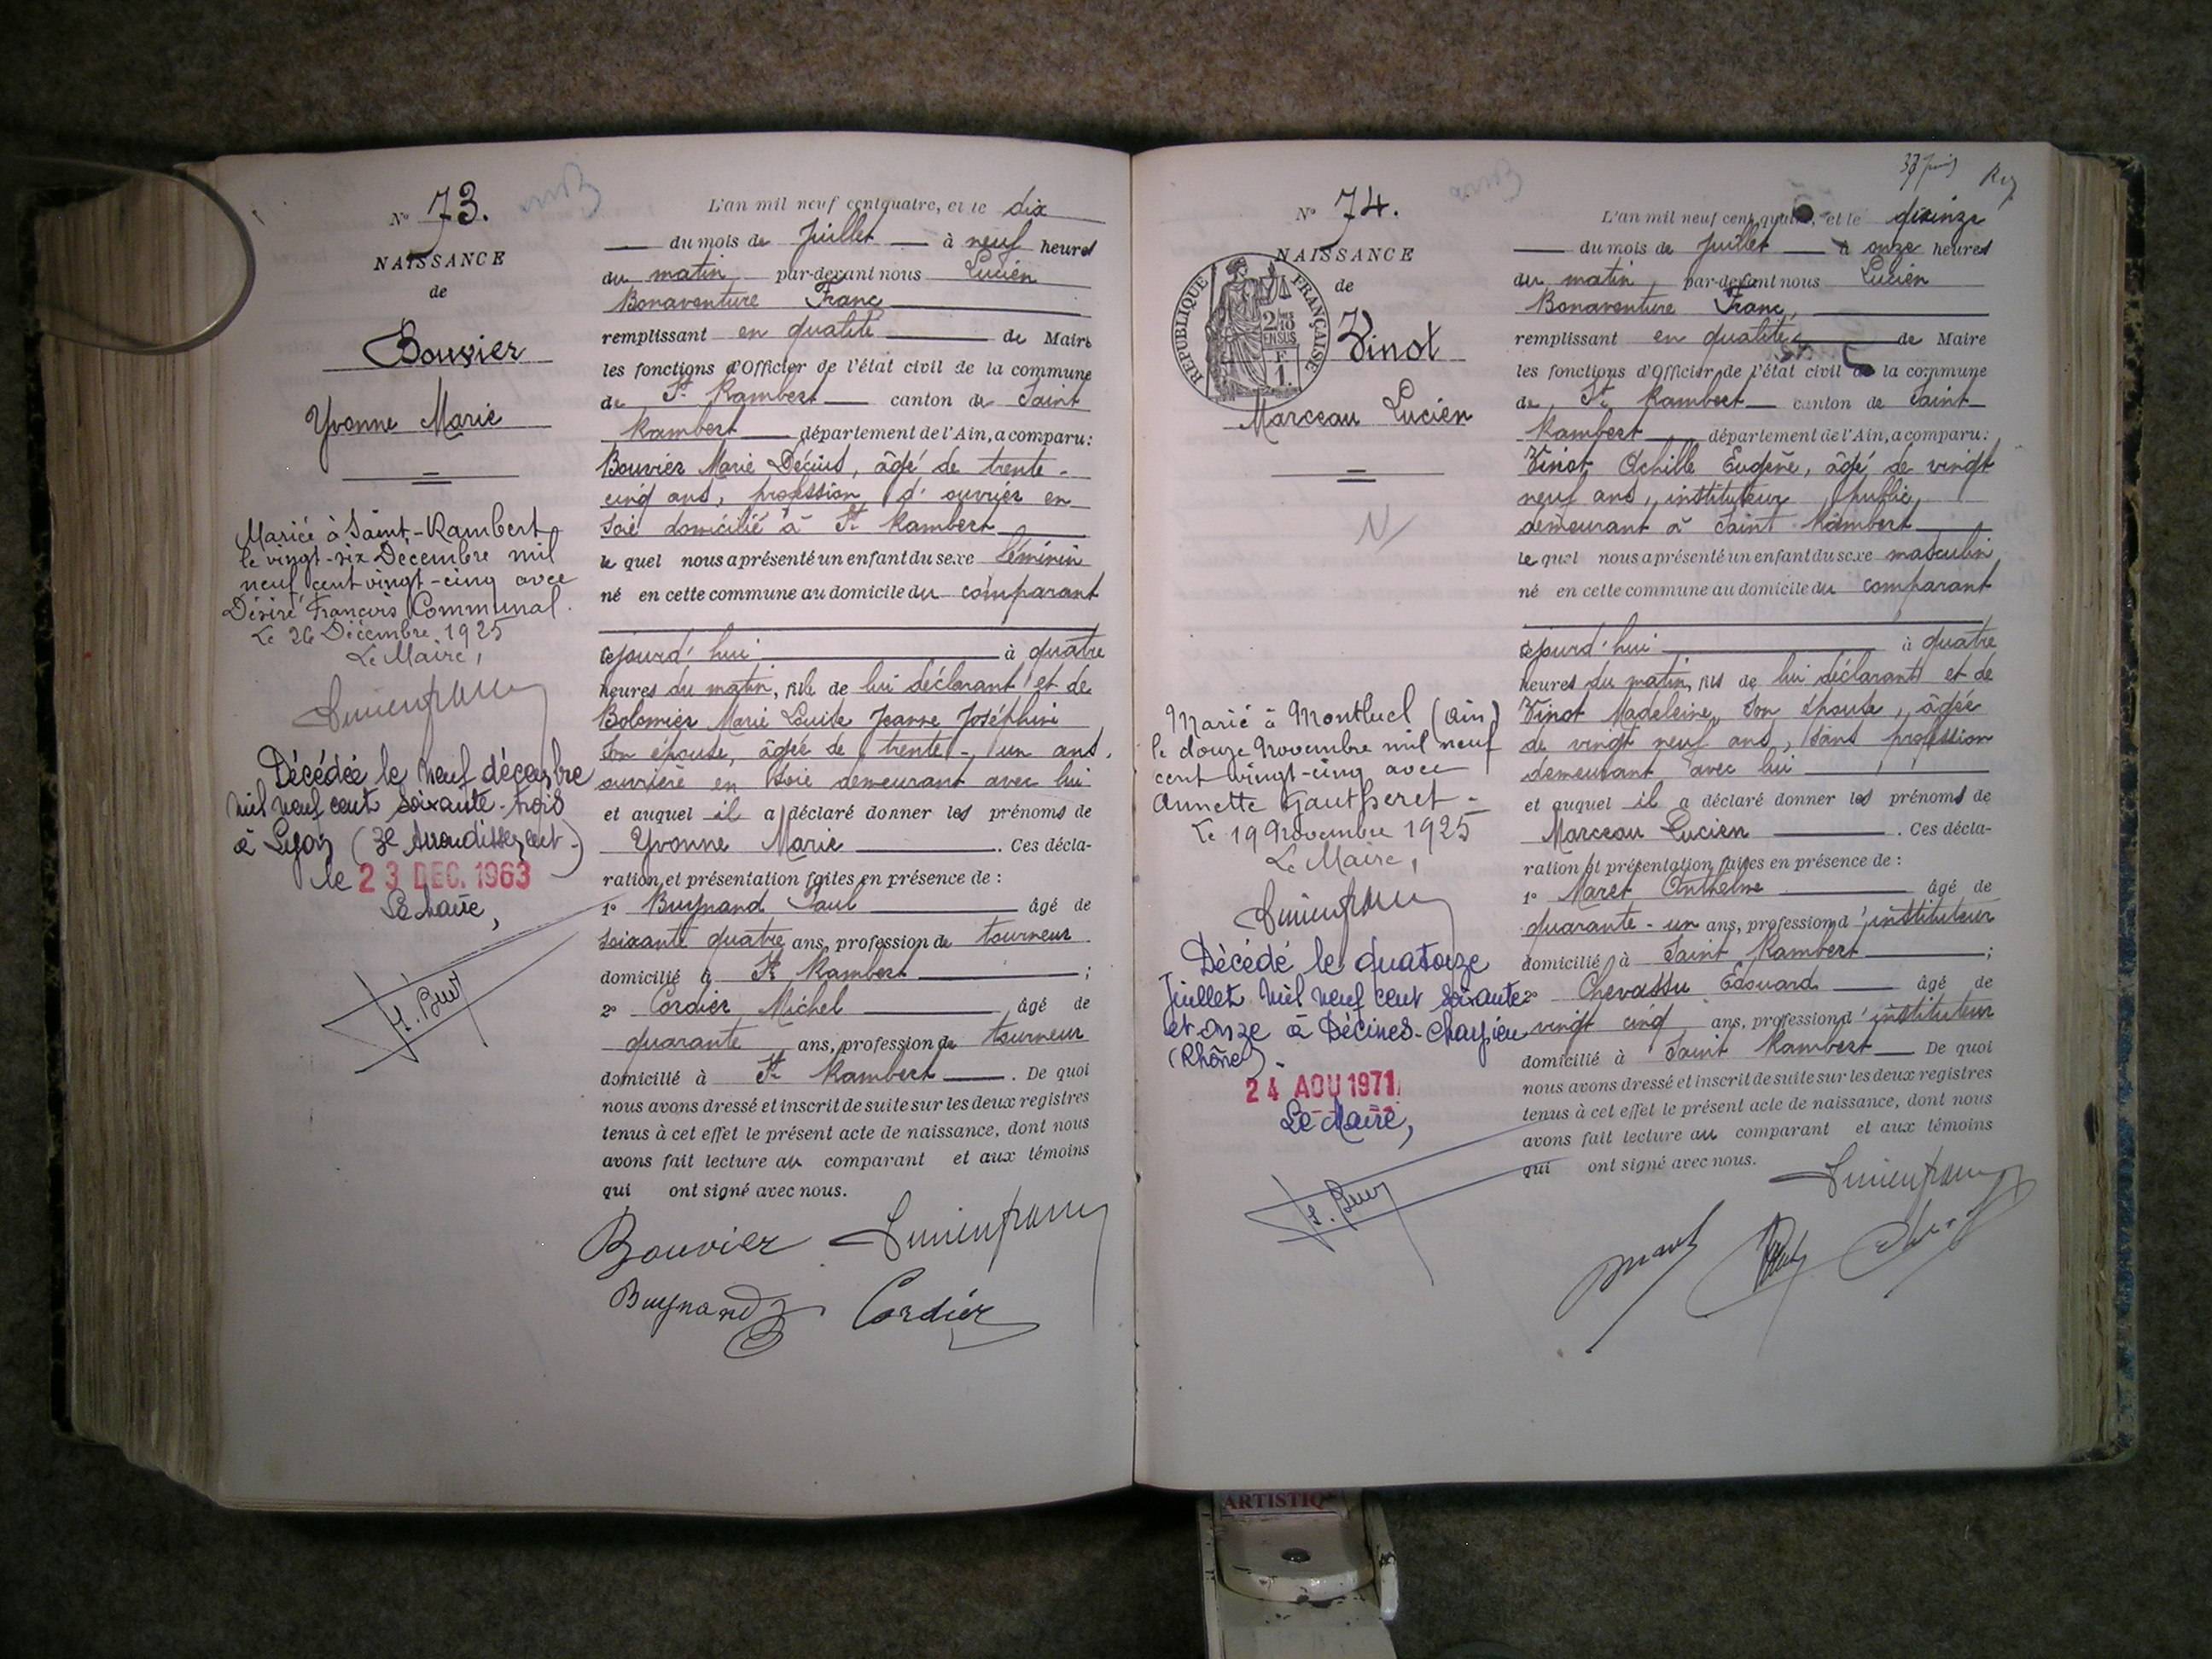 N° 73.
NAISSANCE
de
Bouvier
Yvonne Marie
Mariée à Saint-Rambert
le vingt-six Décembre mil
neuf cent vingt-cinq avec
Désiré François Communal.
Le 26 Décembre 1925
Le Maire,
Lucien franc
Décédée le neuf décembre
mil neuf cent soixante-trois
à Lyon (3e Arrondissement)
le 23 DEC. 1963
Le Maire,
L'an mil neuf cent quatre, et le dix
du mois de Juillet à neuf heures
du matin par-devant nous Lucien
Bonaventure Franc
remplissant en qualité de Maire
les fonctions d'Officier de l'état civil de la commune
de St Rambert canton de Saint
Rambert département de l'Ain, a comparu:
Bouvier Marie Décius, âgé de trente-
cinq ans, profession d'ouvrier en
soie domicilié à St Rambert
le quel nous a présenté un enfant du sexe féminin
né en cette commune au domicile du comparant
cejourd'hui à quatre
heures du matin, fils de lui déclarant et de
Bolomier Marie Louise Jeanne Joséphine
son épouse, âgée de trente-un ans,
ouvrière en soie demeurant avec lui
et auquel il a déclaré donner les prénoms de
Yvonne Marie . Ces décla-
ration et présentation faites en présence de :
1° Buynand Paul âgé de
soixante quatre ans, profession de tourneur
domicilié à St Rambert ;
2° Cordier Michel âgé de
quarante ans, profession de tourneur
domicilié à St Rambert . De quoi
nous avons dressé et inscrit de suite sur les deux registres
tenus à cet effet le présent acte de naissance, dont nous
avons fait lecture au comparant et aux témoins
qui ont signé avec nous.
Bouvier Lucien franc
Buynand Cordier
N° 74.
NAISSANCE
de
REPUBLIQUE FRANÇAISE
2/10 EN SUS
1 F.
Vinot
Marceau Lucien
N
Marié à Montluel (Ain)
le douze Novembre mil neuf
cent vingt-cinq avec
Annette Gautheret -
Le 19 Novembre 1925
Le Maire,
Lucien franc
Décédé le quatorze
Juillet mil neuf cent soixante
et onze à Décines-Charpieu
(Rhône).
24 AOU 1971
Le Maire,
L'an mil neuf cent quatre, et le
du mois de Juillet à onze heures
du matin, par-devant nous Lucien
Bonaventure Franc,
remplissant en qualité de Maire
les fonctions d'Officier de l'état civil de la commune
de St Rambert canton de Saint
Rambert département de l'Ain, a comparu:
Vinot Achille Eugène, âgé de vingt
neuf ans, instituteur public,
demeurant à Saint Rambert
le quel nous a présenté un enfant du sexe masculin
né en cette commune au domicile du comparant
cejourd'hui à quatre
heures du matin, fils de lui déclarant et de
Vinot Madeleine son épouse, âgée
de vingt neuf ans, sans profession
demeurant avec lui
et auquel il a déclaré donner les prénoms de
Marceau Lucien . Ces décla-
ration et présentation faites en présence de :
1° Maret Anthelme âgé de
quarante-un ans, profession d'instituteur
domicilié à Saint Rambert ;
2° Chevassu Edouard âgé de
vingt cinq ans, profession d'instituteur
domicilié à Saint Rambert De quoi
nous avons dressé et inscrit de suite sur les deux registres
tenus à cet effet le présent acte de naissance, dont nous
avons fait lecture au comparant et aux témoins
qui ont signé avec nous.
Lucien franc
ARTISTIQ